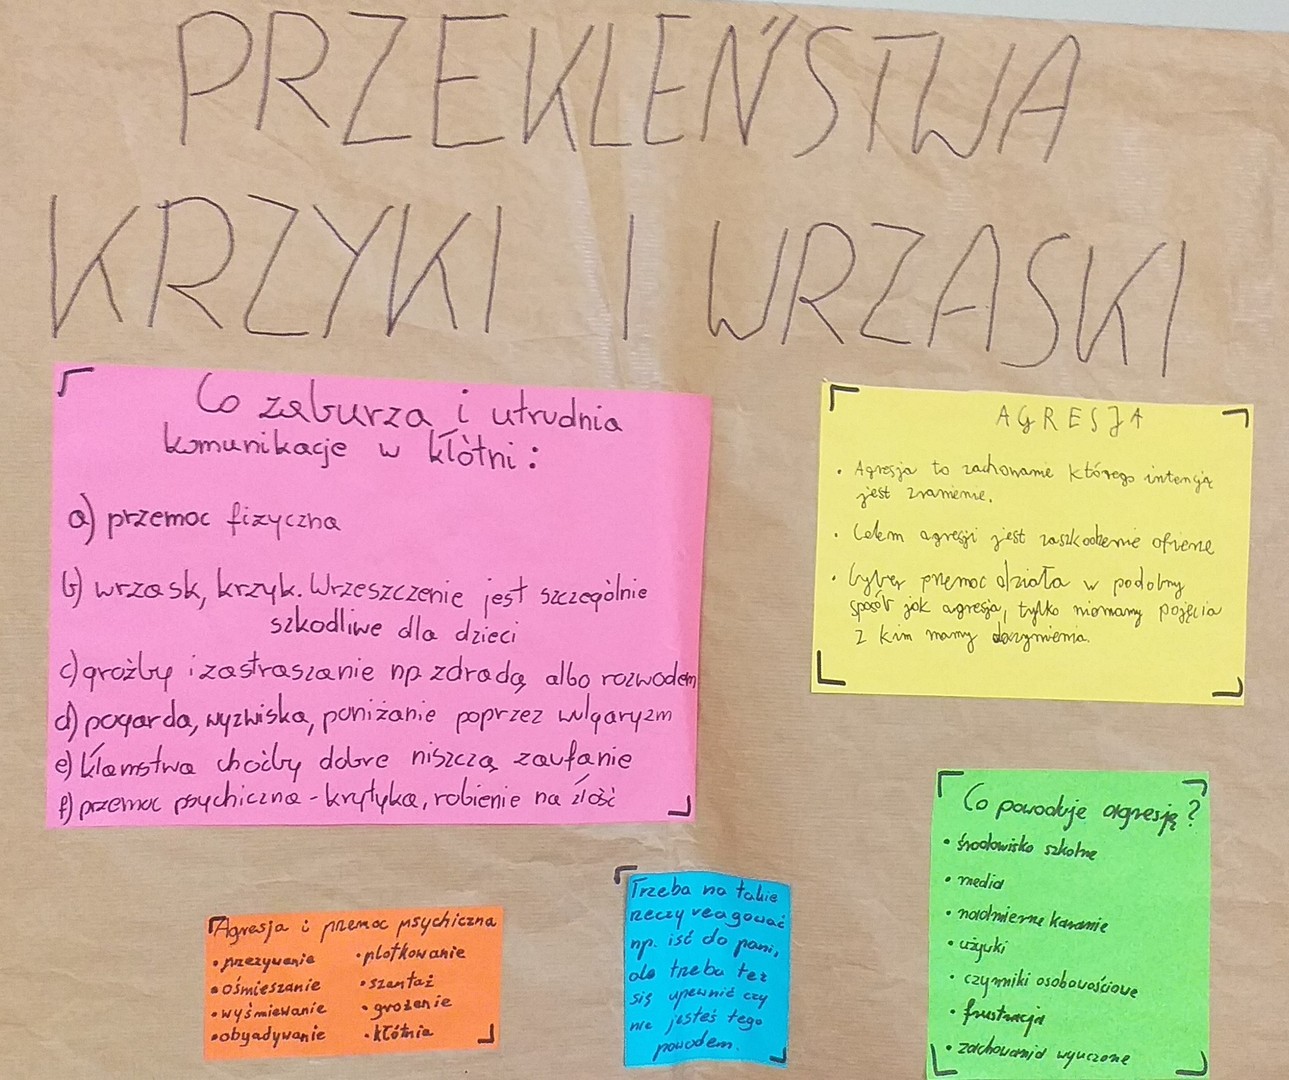 PRZEKLEŃSTWA
KRZYKI I WRZASKI
Co zaburza i utrudnia
komunikacje w kłótni:
a) przemoc fizyczna
b) wrzask, krzyk. Wrzeszczenie jest szczególnie
szkodliwe dla dzieci
c) groźby i zastraszanie np. zdradą albo rozwodem
d) pogarda, wyzwiska, poniżanie poprzez wulgaryzm
e) kłamstwa choćby dobre niszczą zaufanie
f) przemoc psychiczna - krytyka, robienie na złość
AGRESJA
• Agresja to zachowanie którego intencją
jest zranienie.
• Celem agresji jest zaszkodzenie ofierze
• Cyber przemoc działa w podobny
sposób jak agresja, tylko niemamy pojęcia
z kim mamy doczynienia.
Co powoduje agresję?
• środowisko szkolne
• media
• nadmierne karanie
• używki
• czynniki osobowościowe
• frustracja
• zachowania wyuczone
Agresja i przemoc psychiczna
• przezywanie • plotkowanie
• ośmieszanie • szantaż
• wyśmiewanie • grożenie
• obgadywanie • kłótnia
Trzeba na takie
rzeczy reagować
np. iść do pani,
ale trzeba też
się upewnić czy
nie jesteś tego
powodem.